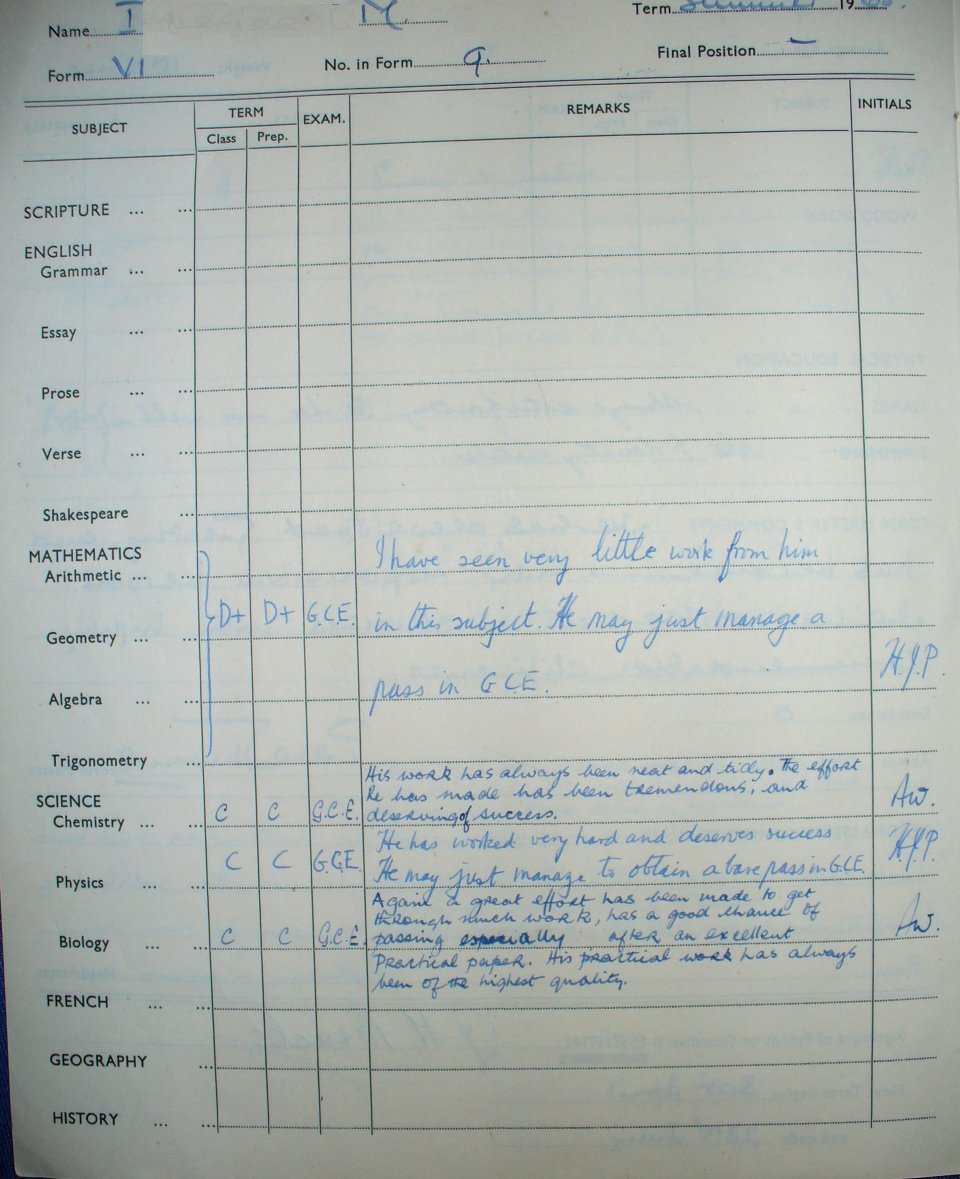 Name I M Term Summer 19
Form VI No. in Form 9. Final Position –
SUBJECT TERM EXAM. REMARKS INITIALS
Class Prep.
SCRIPTURE ... ...
ENGLISH
Grammar ... ...
Essay ... ...
Prose ... ...
Verse ... ...
Shakespeare ...
MATHEMATICS I have seen very little work from him
Arithmetic ... ...
D+ D+ G.C.E. in this subject. He may just manage a
Geometry ... ...
pass in G.C.E. H.J.P.
Algebra ... ...
Trigonometry ...
His work has always been neat and tidy. The effort
SCIENCE he has made has been tremendous, and
Chemistry ... ... C C G.C.E. deserving of success. AW.
He has worked very hard and deserves success
C C G.C.E. He may just manage to obtain a bare pass in G.C.E. H.J.P.
Physics ... ...
Again a great effort has been made to get
through much work, has a good chance of
Biology ... ... C C G.C.E. passing especially after an excellent AW.
Practical paper. His practical work has always
been of the highest quality.
FRENCH ... ...
GEOGRAPHY ...
HISTORY ... ...